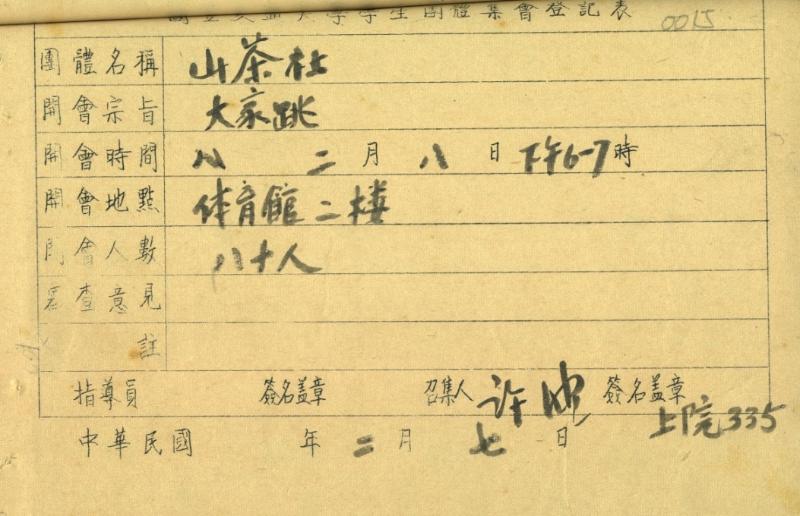 國立交通大學學生團體集會登記表 0015
團體名稱 山茶社
開會宗旨 大家跳
開會時間 二月八日下午6-7時
開會地點 体育館二楼
開會人數 八十人
審查意見
註
指導員 簽名盖章 召集人 许 簽名盖章
上院335
中華民國 年二月七日